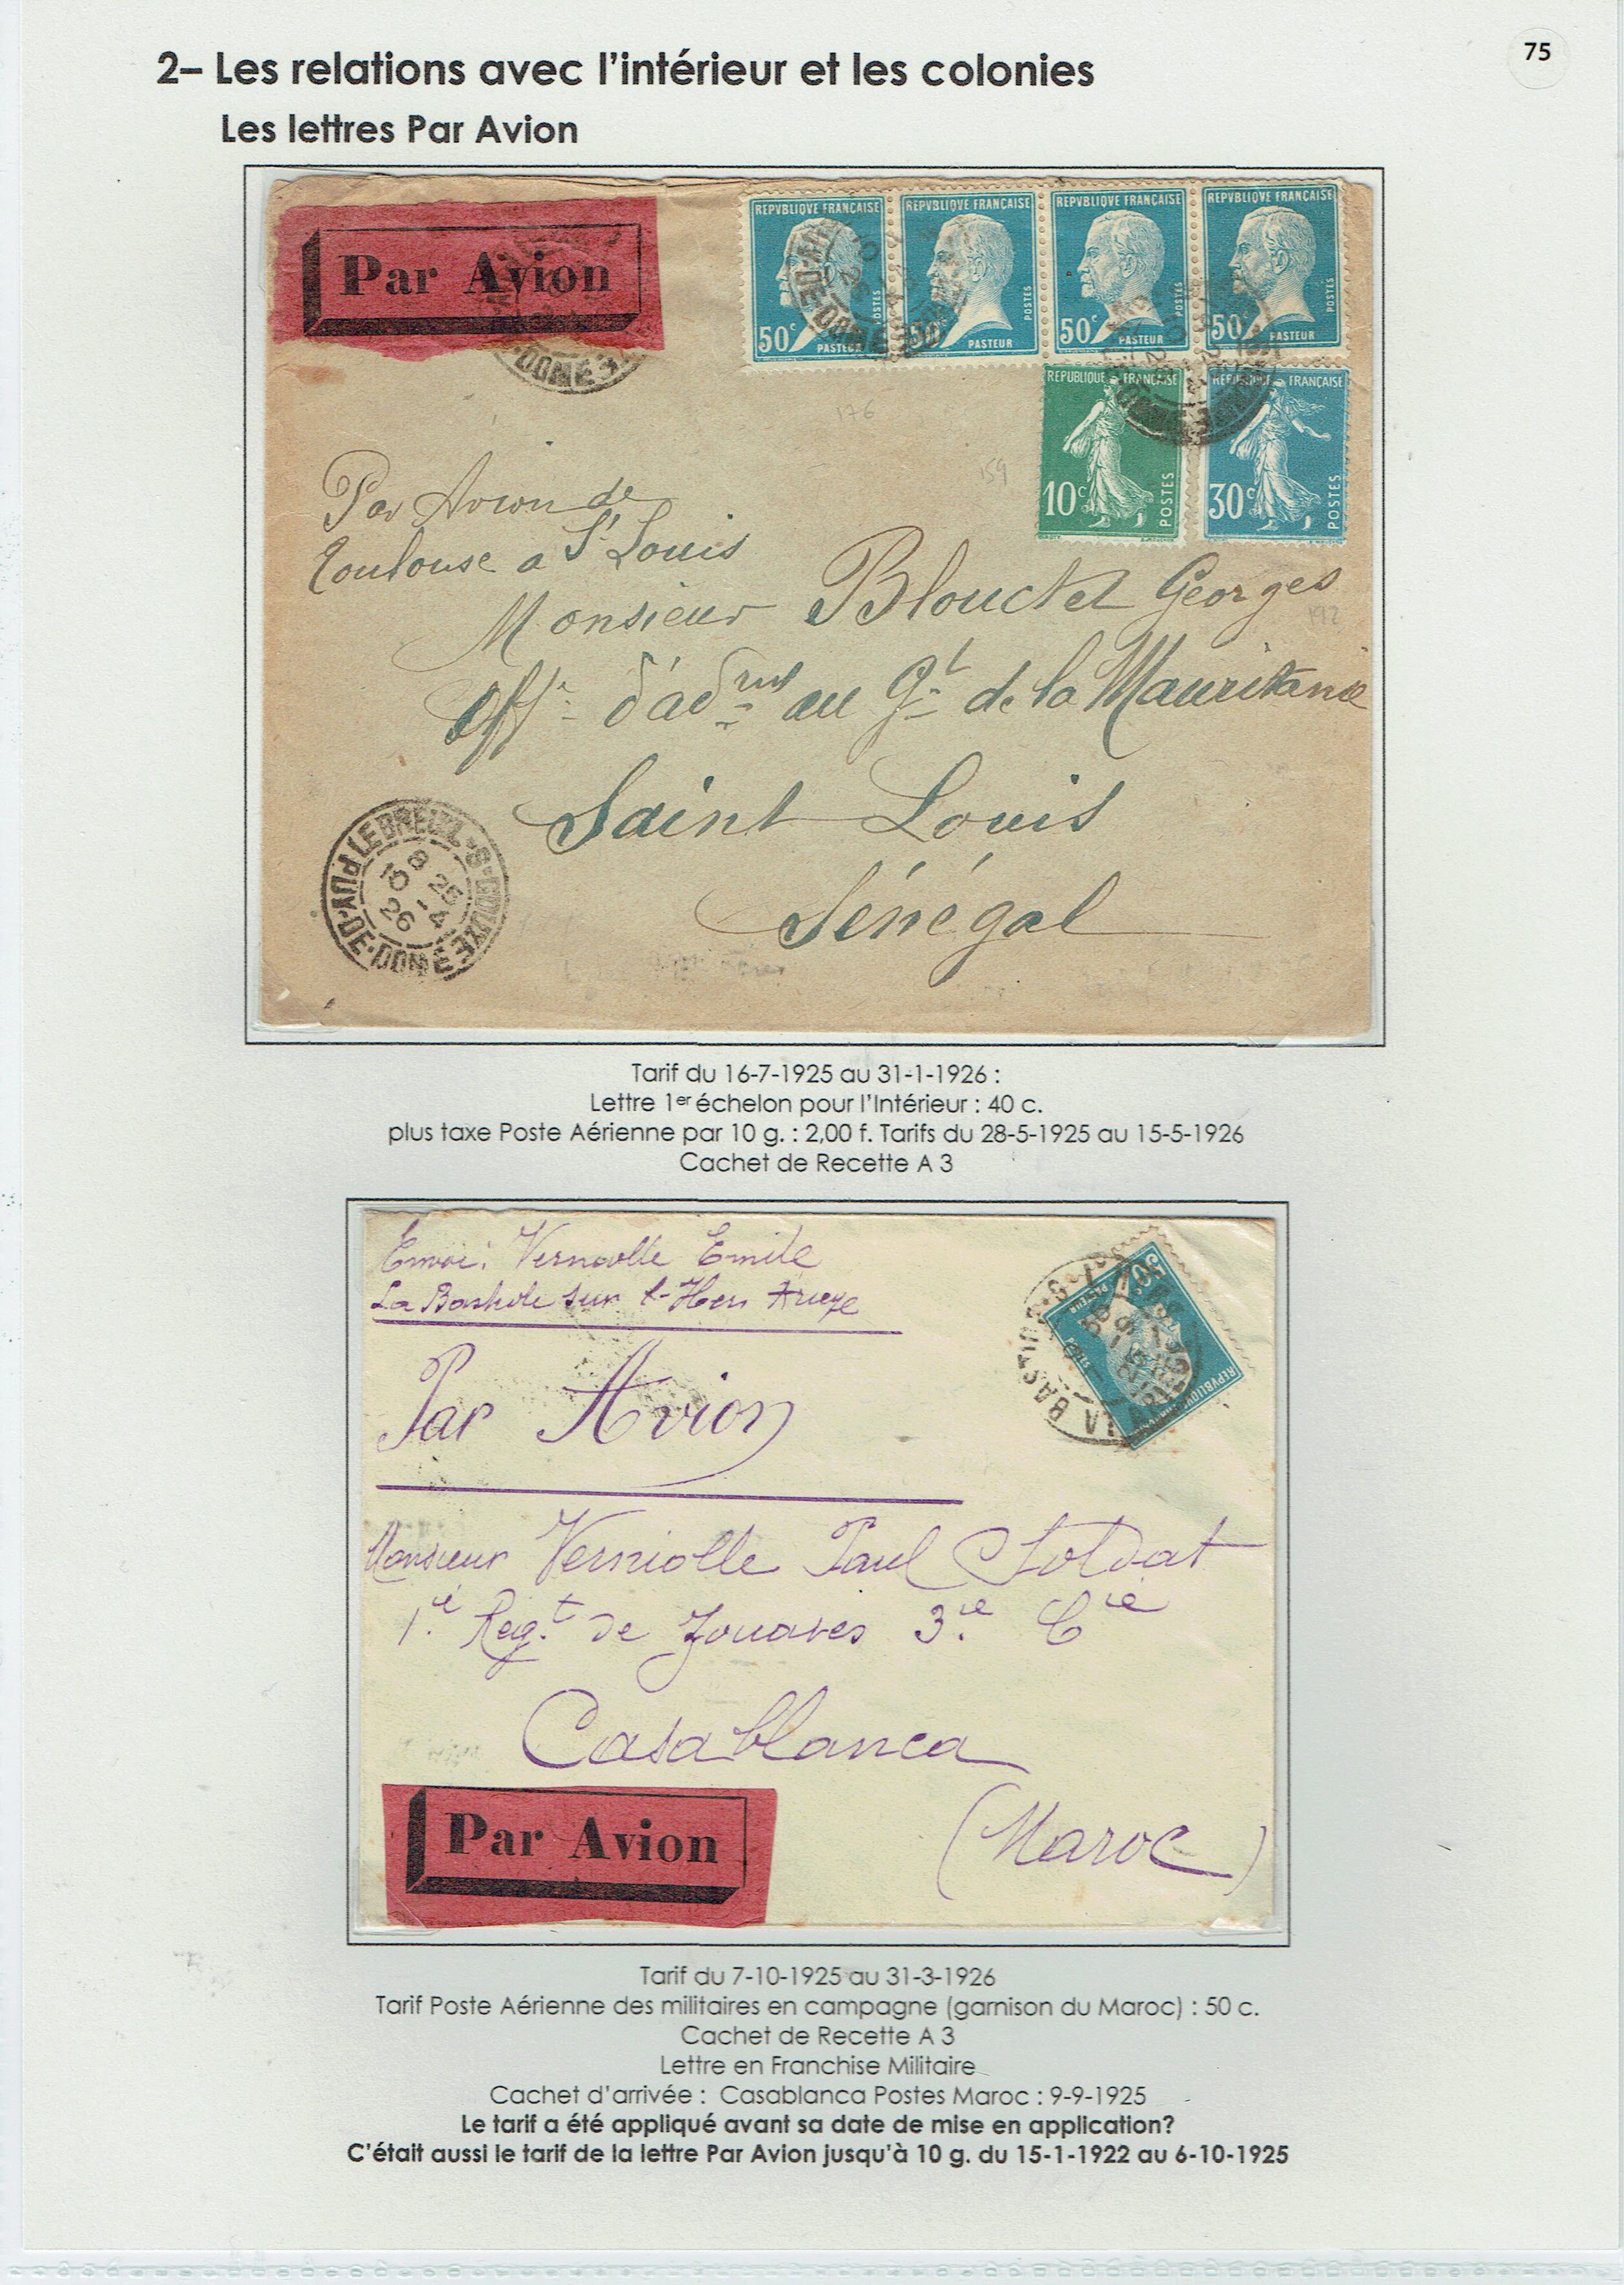 2– Les relations avec l'intérieur et les colonies
75
Les lettres Par Avion
Par Avion
REPVBLIQVE FRANÇAISE
REPVBLIQVE FRANÇAISE
REPVBLIQVE FRANÇAISE
REPVBLIQVE FRANÇAISE
50c PASTEUR POSTES
50c PASTEUR POSTES
50c PASTEUR POSTES
50c PASTEUR POSTES
REPUBLIQUE FRANÇAISE
REPUBLIQUE FRANÇAISE
176
159
10c POSTES
30c POSTES
Par Avion de
Toulouse a St Louis
Monsieur Blouctet Georges
192
Offr d'adon au Gt de la Mauritanie
Saint Louis
Sénégal
8
10 25
-4
26
PUY-DE-DOME
Tarif du 16-7-1925 au 31-1-1926 :
Lettre 1er échelon pour l'Intérieur : 40 c.
plus taxe Poste Aérienne par 10 g. : 2,00 f. Tarifs du 28-5-1925 au 15-5-1926
Cachet de Recette A 3
Envoi: Verniolle Emile
La Bastide sur l'Hers Ariege
50c
PASTEUR
POSTES
REPVBLIQVE FRANÇAISE
LA BASTIDE-S-
ARIEGE
Par Avion
Monsieur Verniolle Paul Soldat
1.é Reg.t de Zouaves 3.ie Cie
Casablanca
(Maroc)
Par Avion
Tarif du 7-10-1925 au 31-3-1926
Tarif Poste Aérienne des militaires en campagne (garnison du Maroc) : 50 c.
Cachet de Recette A 3
Lettre en Franchise Militaire
Cachet d'arrivée : Casablanca Postes Maroc : 9-9-1925
Le tarif a été appliqué avant sa date de mise en application?
C'était aussi le tarif de la lettre Par Avion jusqu'à 10 g. du 15-1-1922 au 6-10-1925